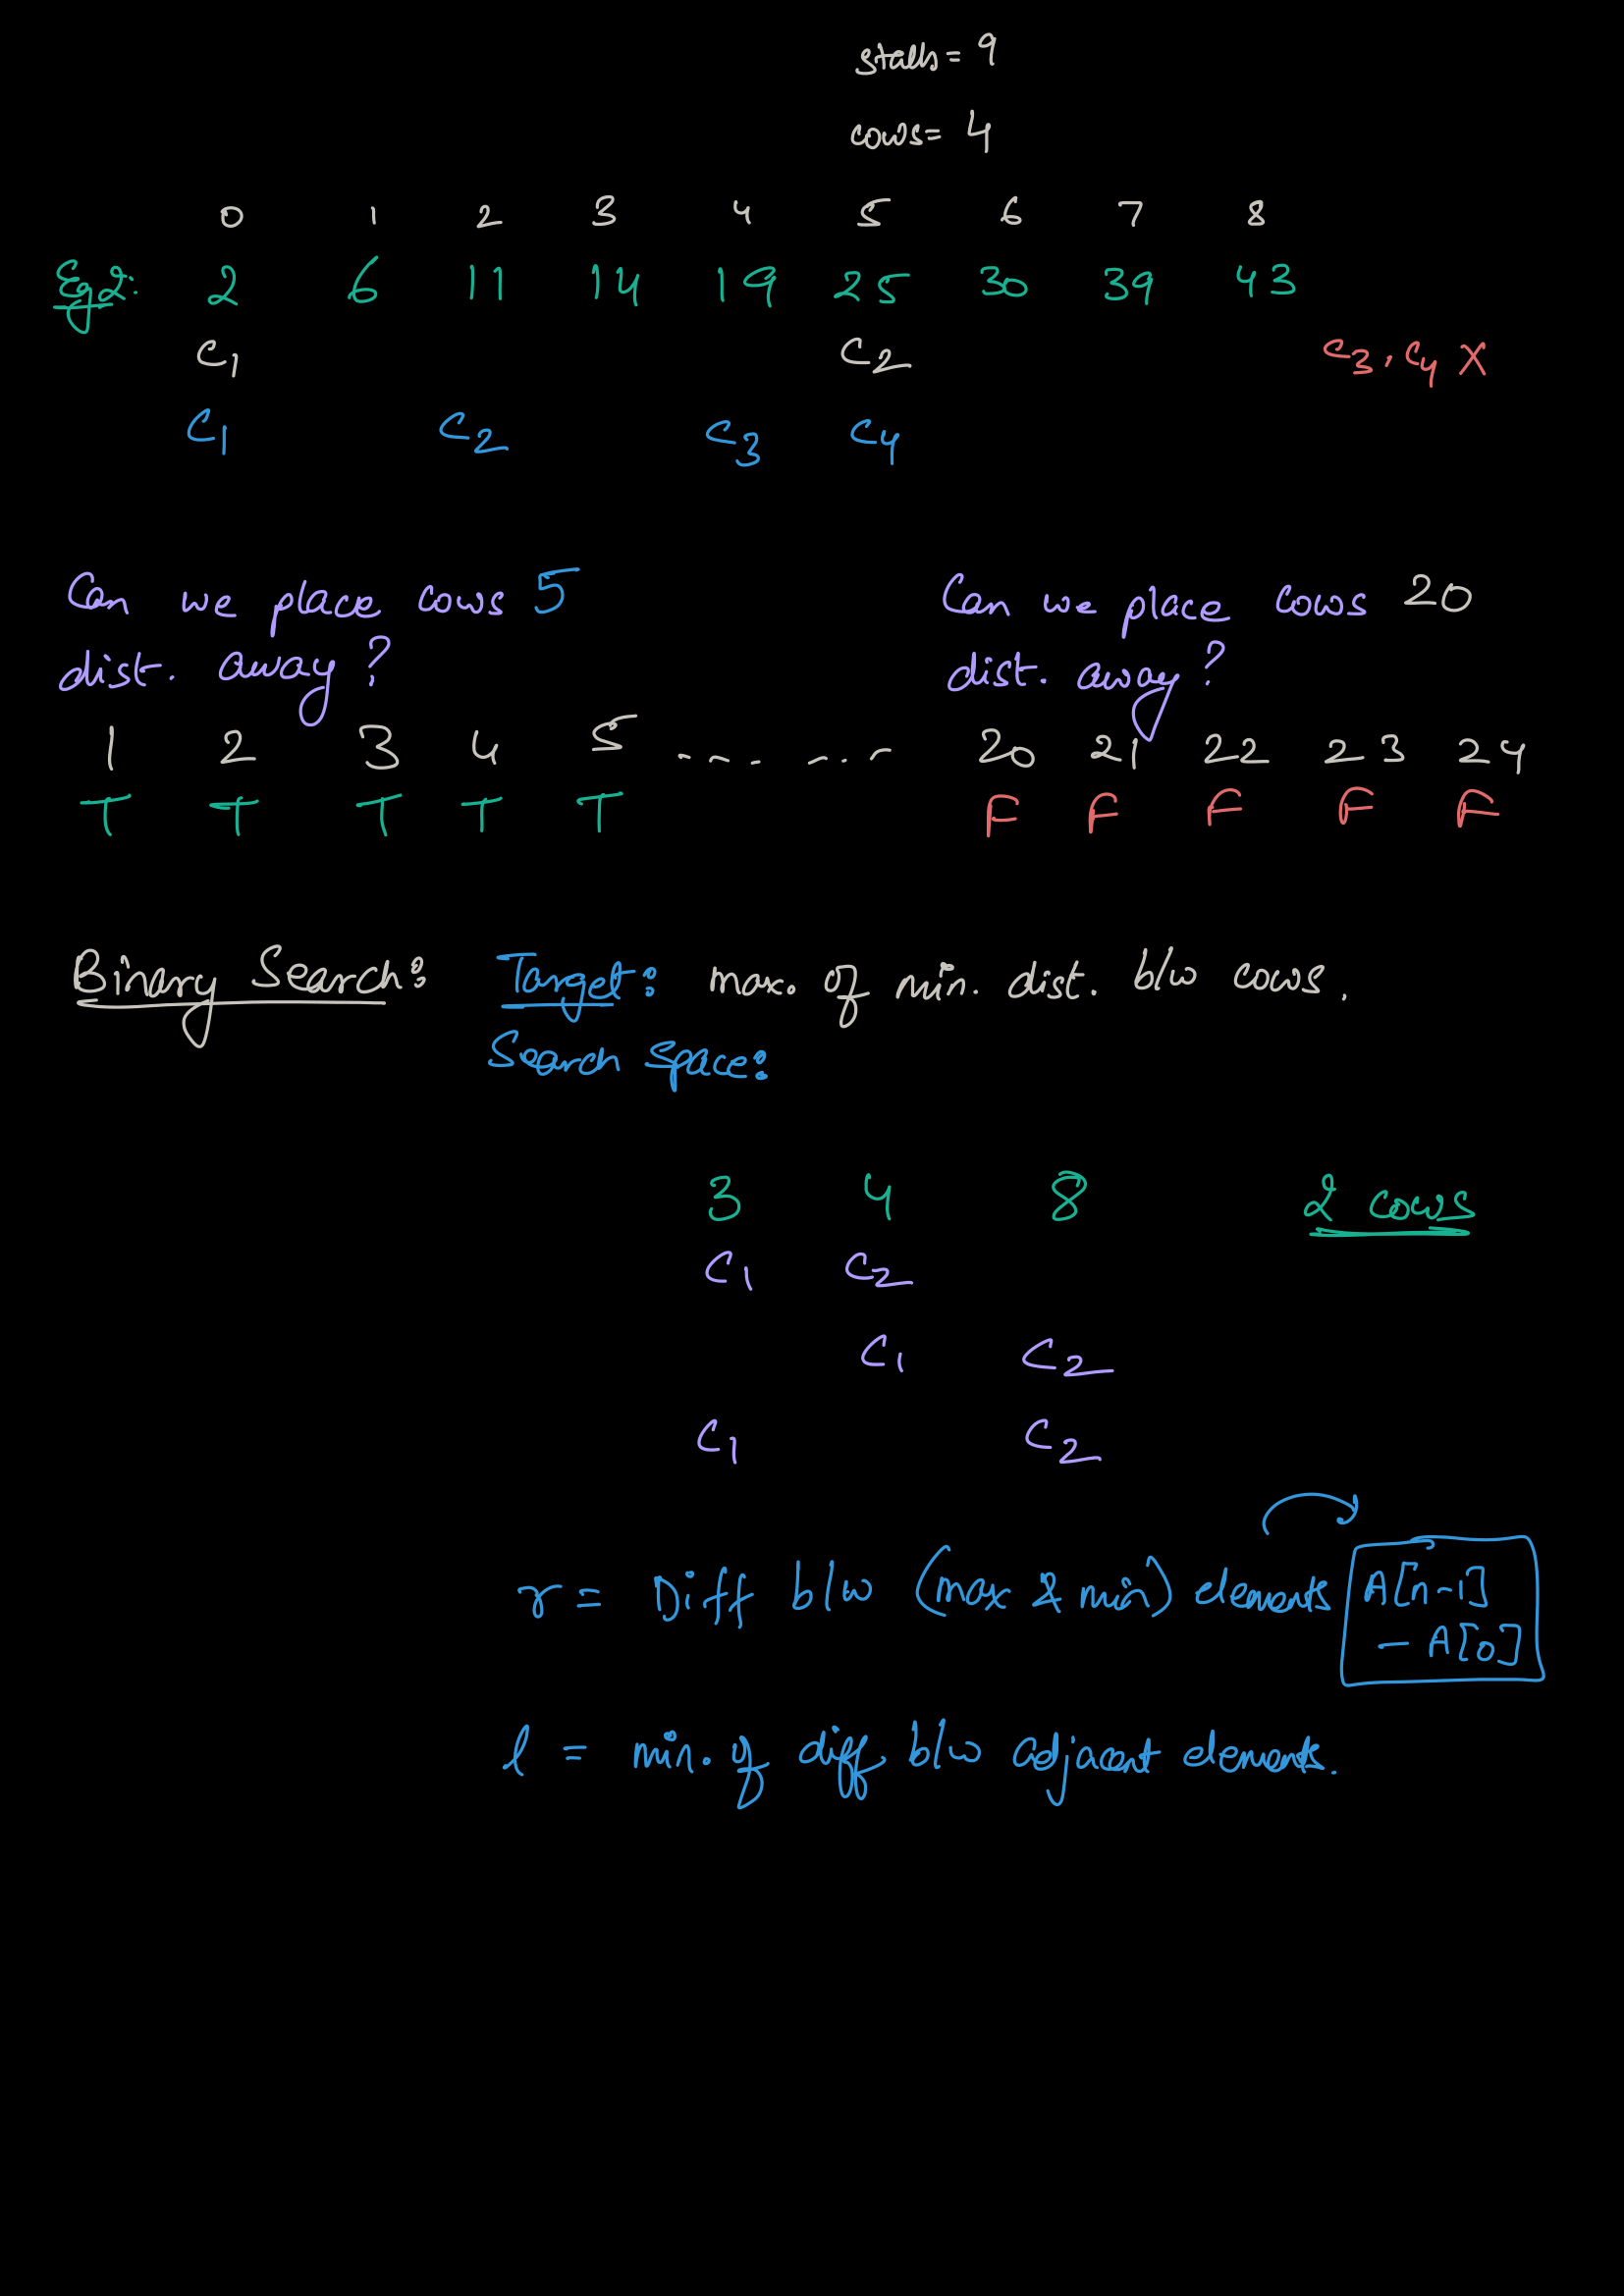 stalls = 9
cows = 4
0 1 2 3 4 5 6 7 8
Eg 2: 2 6 11 14 19 25 30 39 43
C1 C2 C3, C4 X
C1 C2 C3 C4
Can we place cows 5
dist. away?
Can we place cows 20
dist. away?
1 2 3 4 5 ---- --.- 20 21 22 23 24
T T T T T F F F F F
Binary Search: Target: max. of min. dist. b/w cows.
Search Space:
3 4 8 2 cows
C1 C2
C1 C2
C1 C2
r = Diff b/w (max & min) elements A[n-1]
- A[0]
l = min. of diff. b/w adjacent elements.